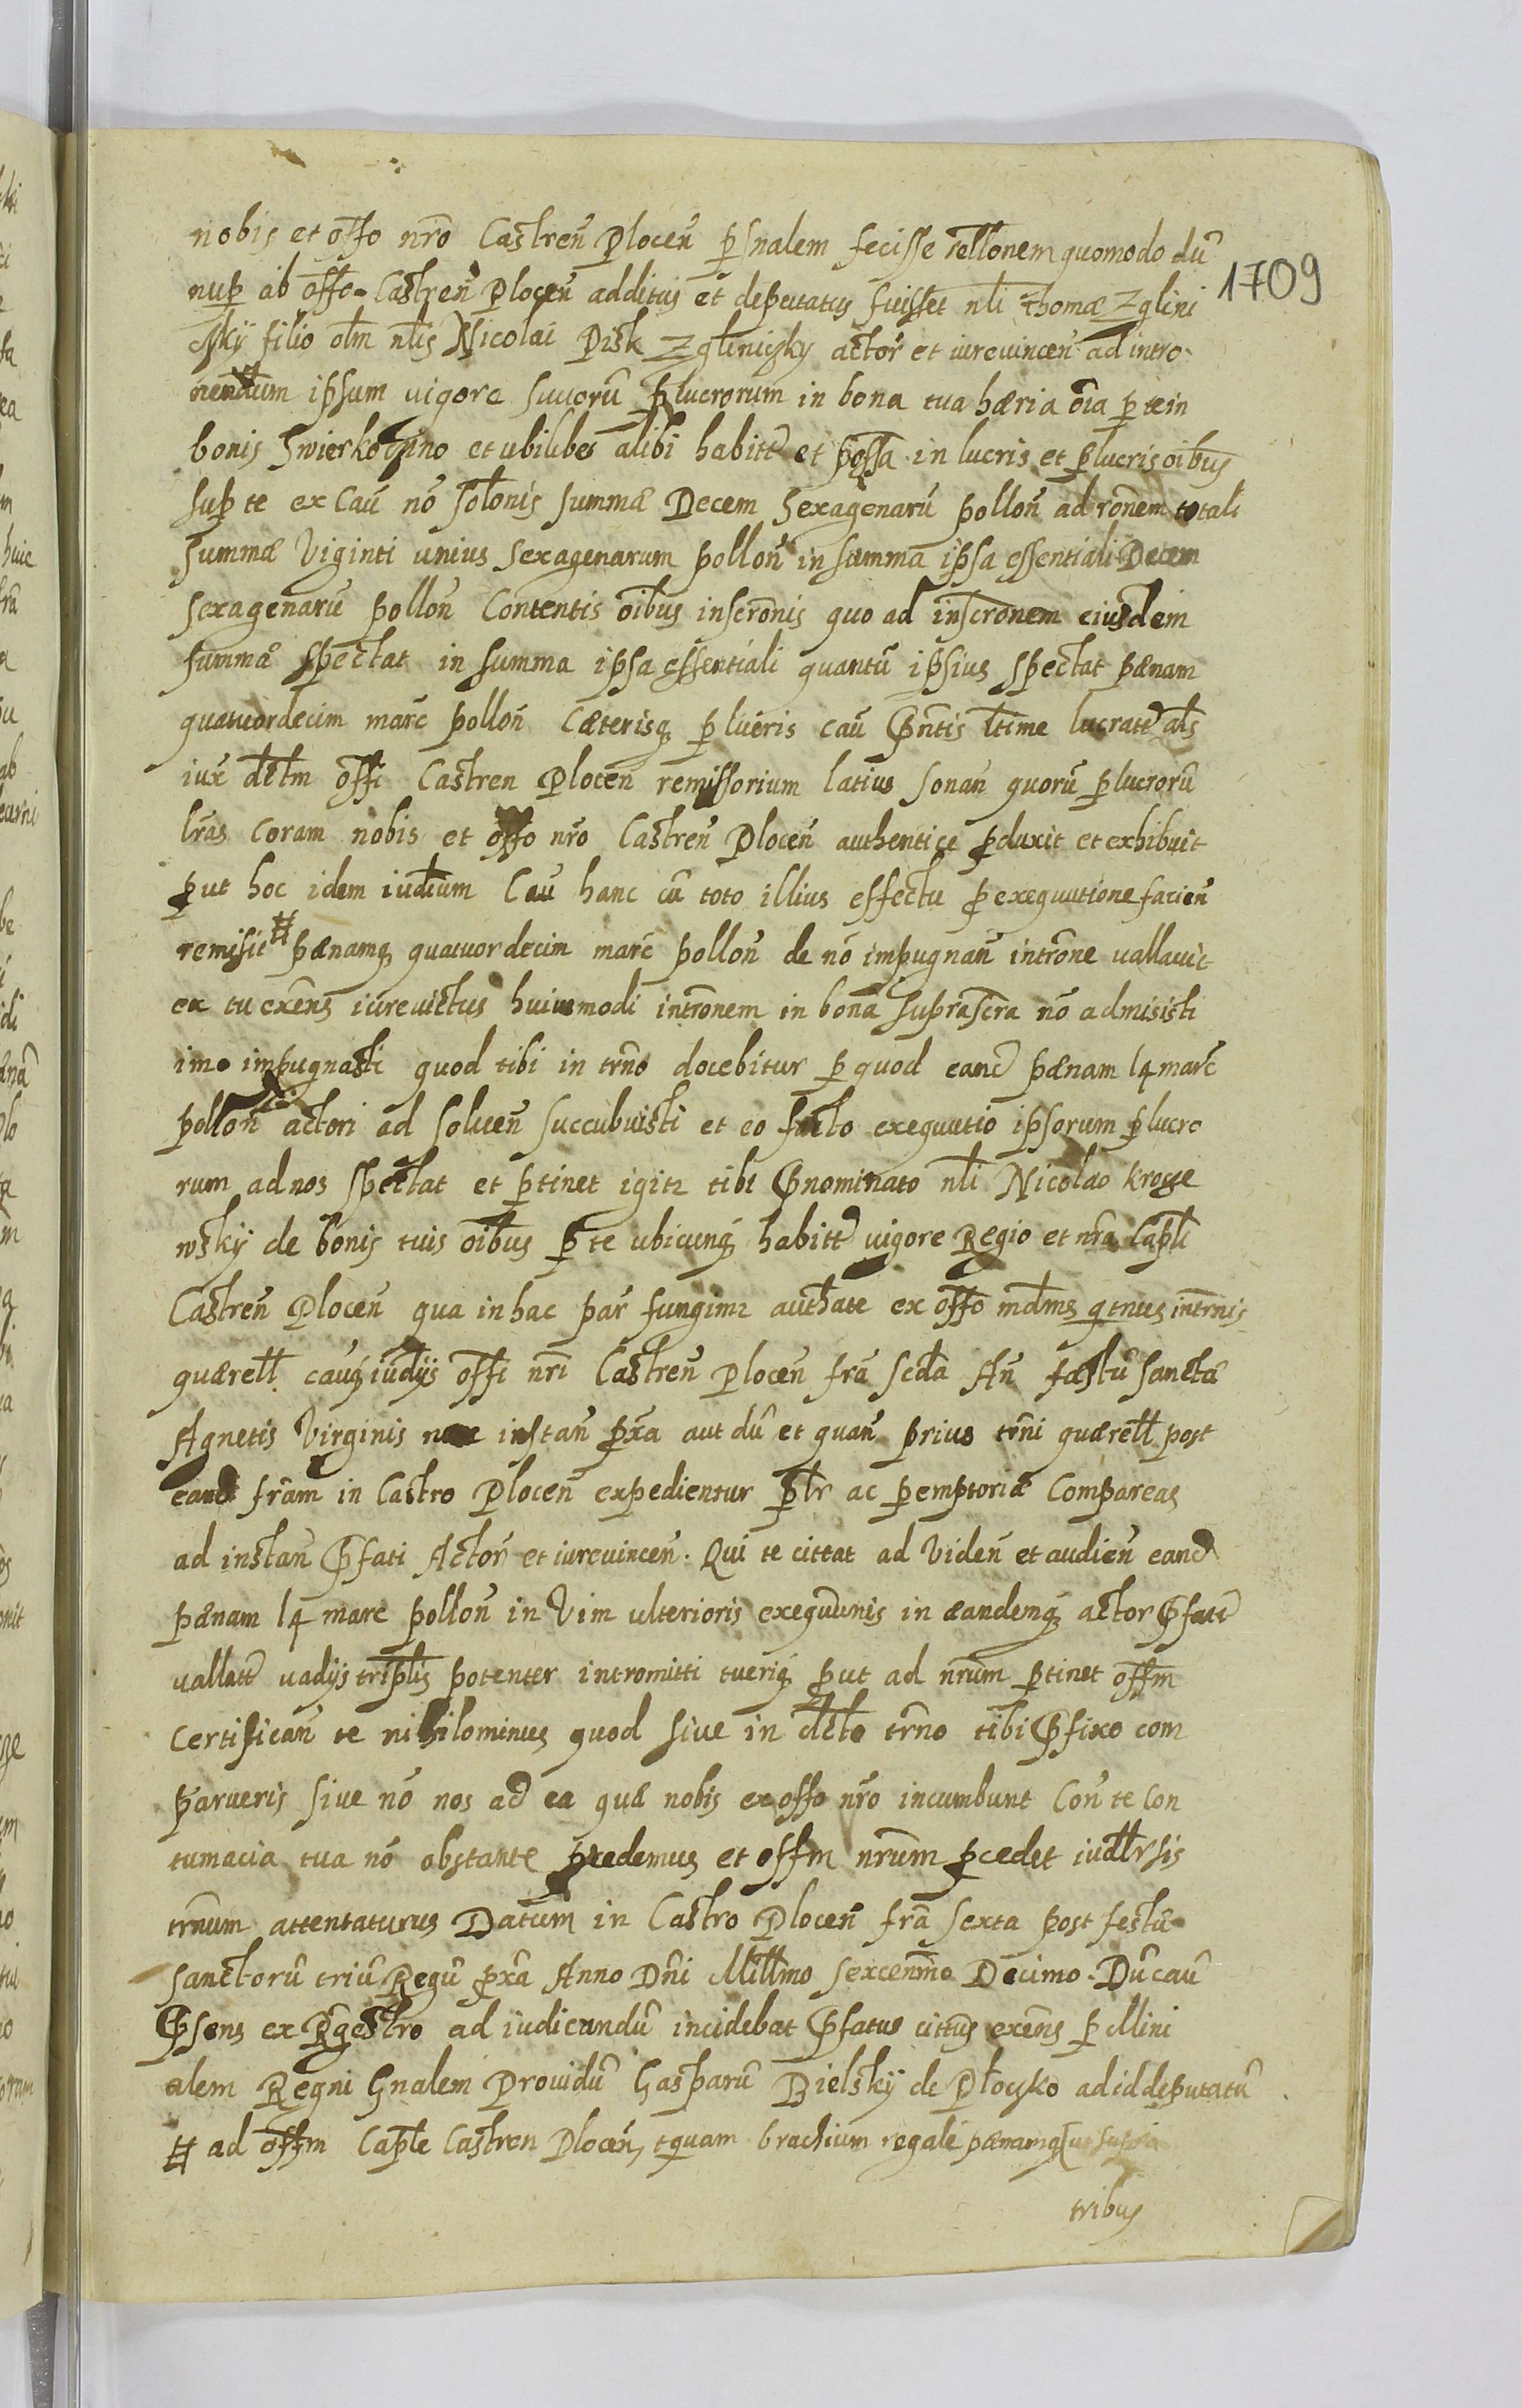 nobis et offo nro Castren̄ Plocen̄ p̱snalem fecisse rellonem quomodo dū
1709
nup̱ ab offo Castren̄ Plocen̄ additus et deputatus fuisset nli Thomæ Zglini
czky filio olm nlis Nicolai Pisk Zgliniczky actor̄ et iurevincen̄ ad intro-
mittendum ipsum vigore suorū p̱lucrorum in bona tua hæria oīa p̱ te in
bonis Swierkoczino et ubilibet alibi habitt et possa in lucris et p̱lucris oībus
sup̱ te ex Caū nō solonis summæ Decem Sexagenarū pollon̄ ad ronem totali
summæ Viginti unius Sexagenarum pollon̄ in summa ipsa essentiali Decem
sexagenarū pollon̄ Contentis oībus inscronis quo ad inscronem eiusdem
summæ spectat in summa ipsa essentiali quantū ipsius spectat pænam
quatuordecim marc̄ pollon̄ Cæterisq̨ p̱lucris caū p̄ntis ltime lucratt als
iux dctm offi Castren Plocen̄ remissorium latius sonan̄ quorū p̱lucrorū
lras coram nobis et offo nro Castren̄ Plocen̄ authentice p̱duxit et exhibuit
p̱ut hoc idem iudium Caū hanc cū toto illius effectu p̱ exequutione facien̄
remisit # pænamq̨ quatuordecim marc̄ pollon̄ de nō impugnan̄ introne vallavit
ea tu exens iurevictus huiusmodi intronem in bona suprascra nō admisisti
imo impugnasti quod tibi in trno docebitur p̱ quod eand pænam 14 marc̄
pollon̄ actori ad soluen̄ succubuisti et eo facto exequutio ipsorum p̱lucro
rum ad nos spectat et p̱tinet igitr tibi p̄nominato nli Nicolao Kroge
wsky de bonis tuis oībus p̱ te ubicunq̨ habitt vigore Regio et nra Capli
Castren̄ Plocen̄ qua in hac par̄ fungimr authate ex offo mdms qtnus in trnis
quærell cauq̨ iudijs offi nri Castren̄ Plocen̄ fra scda An̄ fæstū Sanctæ
Agnetis Virginis nunc instan̄ p̱xa aut dū et quan̄ prius trni quærell post
eand fram in Castro Plocen̄ expedientur p̱lr ac p̱emptoriæ Compareas
ad instan̄ p̄fati Actor̄ et iurevincen̄. Qui te cittat ad Viden̄ et audien̄ eand
pænam 14 marc pollon̄ in Vim ulterioris exequunis in æandemq̨ actor p̄fatt
vallatt vadijs triplis potenter intromitti tueriq̨ p̱ut ad nrum p̱tinet offm
Certifican̄ te nihilominus quod sive in dcto trno tibi p̄fixo com
parueris sive nō nos ad ea quæ nobis ex offo nro incumbunt Con̄ te con
tumacia tua nō obstante p̱cedemus et offm nrum p̱cedet iudllr sis
trnum attentaturus Datum in Castro Plocen̄ fra sexta post festū
Sanctorū triū Regū p̱xa Anno Dni Millmo Sexcenmo Decimo. Dū caū
p̄sens ex Rgestro ad iudicandū incidebat p̄fatus cittus exens p̱ Mini
alem Regni Gnalem Providū Gasparū Bielsky de Płocko ad id deputatū
# ad offm Caple Castren Plocen̄, tquam brachium regale pænamq̨ [ut supra
tribus